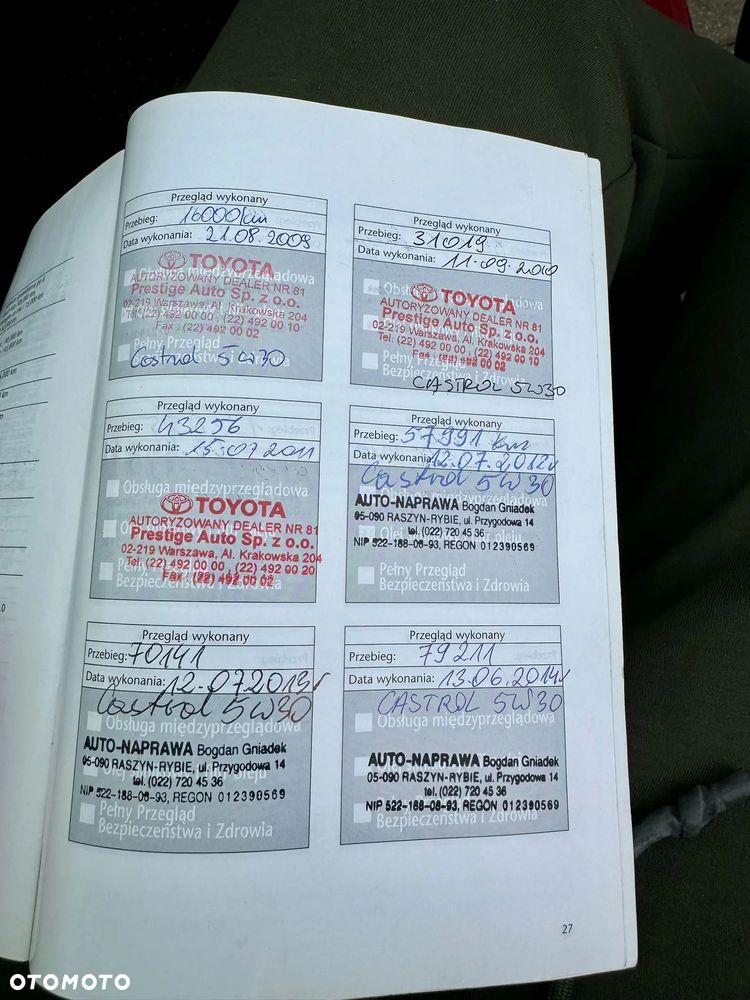 Przegląd wykonany
Przebieg: 16000 km
Data wykonania: 21.08.2009
Obsługa międzyprzeglądowa
TOYOTA
AUTORYZOWANY DEALER NR 81
Prestige Auto Sp. z o.o.
02-219 Warszawa, Al. Krakowska 204
Tel. (22) 492 00 00, (22) 492 00 10
Fax (22) 492 00 02
Pełny Przegląd
Bezpieczeństwa i Zdrowia
Castrol 5W30
Przegląd wykonany
Przebieg: 31019
Data wykonania: 11.09.2010
TOYOTA
AUTORYZOWANY DEALER NR 81
Prestige Auto Sp. z o.o.
02-219 Warszawa, Al. Krakowska 204
Tel. (22) 492 00 00, (22) 492 00 10
Fax (22) 492 00 02
Pełny Przegląd
Bezpieczeństwa i Zdrowia
CASTROL 5W30
Przegląd wykonany
Przebieg: 43256
Data wykonania: 15.07.2011
Obsługa międzyprzeglądowa
TOYOTA
AUTORYZOWANY DEALER NR 81
Prestige Auto Sp. z o.o.
02-219 Warszawa, Al. Krakowska 204
Tel. (22) 492 00 00, (22) 492 00 20
Fax (22) 492 00 02
Pełny Przegląd
Bezpieczeństwa i Zdrowia
Przegląd wykonany
Przebieg: 57991 km
Data wykonania: 12.07.2012r
Castrol 5W30
AUTO-NAPRAWA Bogdan Gniadek
05-090 RASZYN-RYBIE, ul. Przygodowa 14
tel. (022) 720 45 36
NIP 522-188-08-93, REGON 012390569
Pełny Przegląd
Bezpieczeństwa i Zdrowia
Przegląd wykonany
Przebieg: 70141
Data wykonania: 12.07.2013r
Castrol 5W30
Obsługa międzyprzeglądowa
AUTO-NAPRAWA Bogdan Gniadek
05-090 RASZYN-RYBIE, ul. Przygodowa 14
tel. (022) 720 45 36
NIP 522-188-08-93, REGON 012390569
Pełny Przegląd
Bezpieczeństwa i Zdrowia
Przegląd wykonany
Przebieg: 79211
Data wykonania: 13.06.2014r
CASTROL 5W30
Obsługa międzyprzeglądowa
AUTO-NAPRAWA Bogdan Gniadek
05-090 RASZYN-RYBIE, ul. Przygodowa 14
tel. (022) 720 45 36
NIP 522-188-08-93, REGON 012390569
Pełny Przegląd
Bezpieczeństwa i Zdrowia
27
OTOMOTO